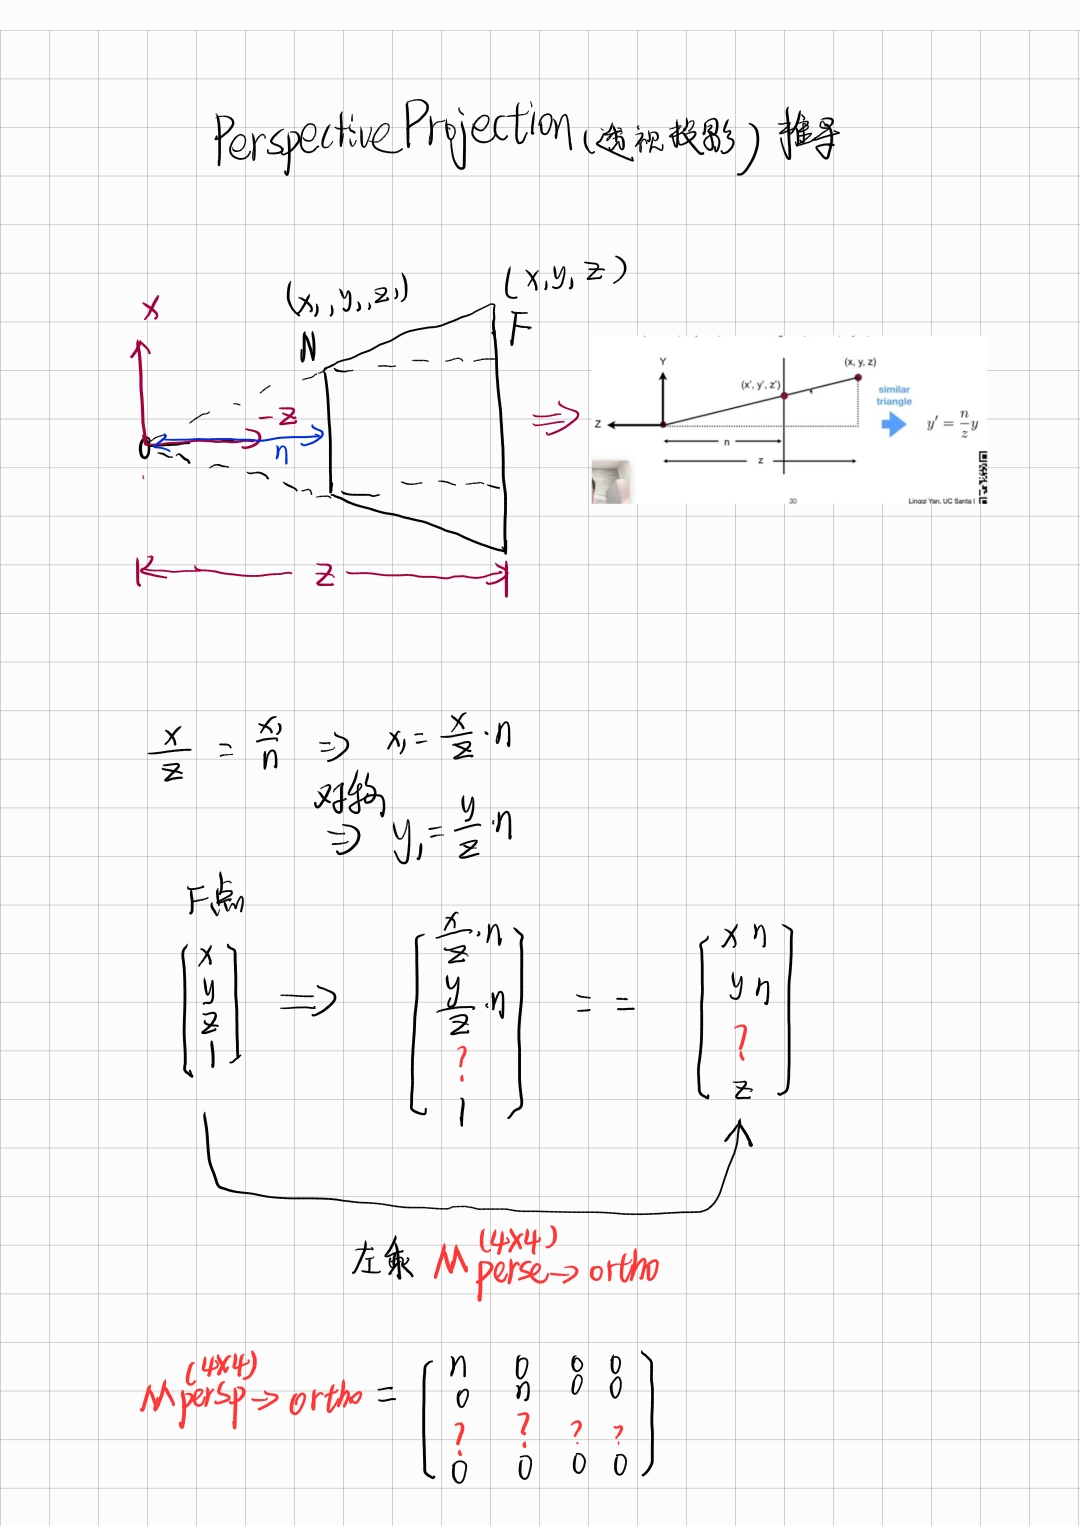 Perspective Projection (透视投影) 推导
(x₁, y₁, z₁)
(x, y, z)
N
F
x
-z
n
O
z
⇒
Y
(x', y', z')
(x, y, z)
Z
n
z
similar
triangle
y' = n/z y
30
Lingqi Yan, UC Santa
x/z = x₁/n ⇒ x₁ = x/z · n
⇒ y₁ = y/z · n
F点
[x y z 1] ⇒ [x/z·n y/z·n ? 1] == [xn yn ? z]
左乘 M (4×4) perse→ortho
M (4×4) persp→ortho =
n 0 0 0
0 n 0 0
? ? ? ?
0 0 0 0